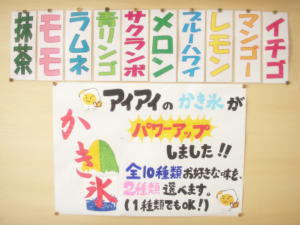 イチゴ
マンゴー
レモン
ブルーハワイ
メロン
サクランボ
青リンゴ
ラムネ
モモ
抹茶
アイアイのかき氷が
パワーアップ
しました!!
かき氷
全10種類お好きな味を、
2種類選べます。
(1種類でもOK!)